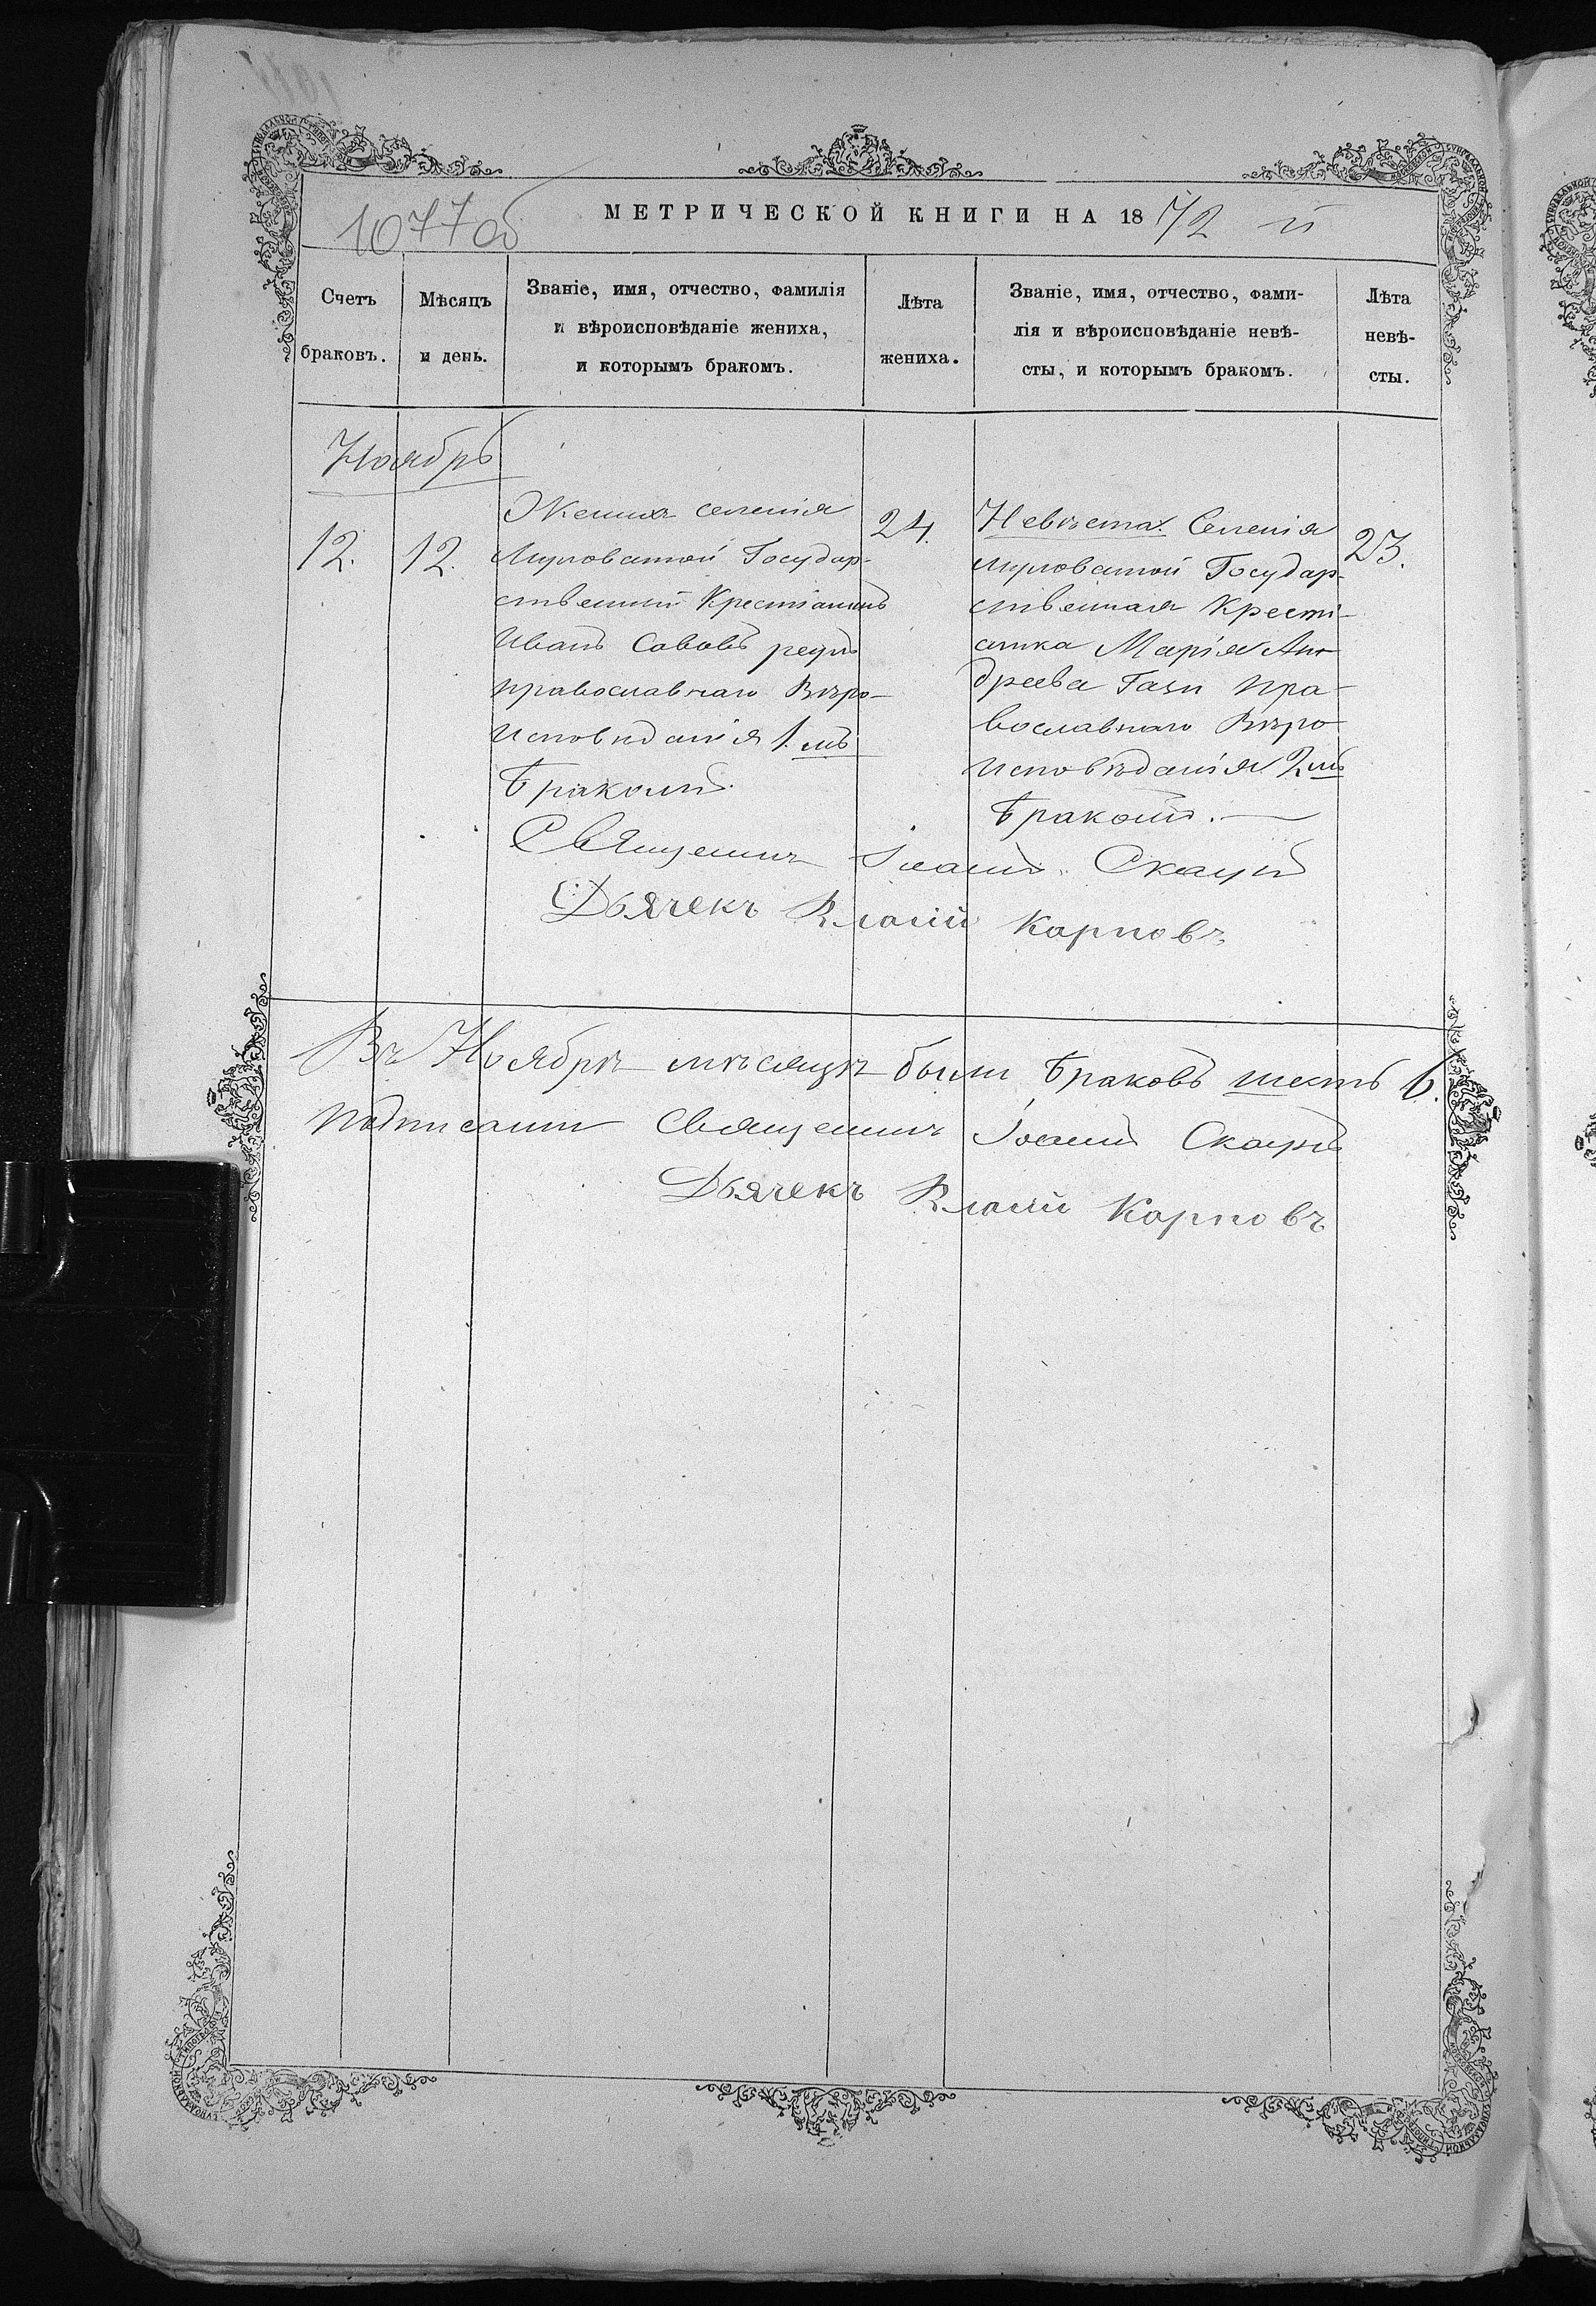 1077 об
МЕТРИЧЕСКОЙ КНИГИ НА 1872 й
Счетъ браковъ.
Мѣсяцъ и день.
Званіе, имя, отчество, фамилія
и вѣроисповѣданіе жениха,
и которымъ бракомъ.
Лѣта жениха.
Званіе, имя, отчество, фами-
лія и вѣроисповѣданіе невѣ-
сты, и которымъ бракомъ.
Лѣта невѣ-
сты.
Ноябрь
12.
12.
Жених селенія
Государ-
ственний Крестіанинъ
Иванъ Саввовъ
православнаго Вѣро-
исповѣданія 1.мъ
бракомъ.
24.
Невѣста. Селенія
Государ-
ственная Крести-
анка Марія Ан-
дреева Гази пра-
вославнаго Вѣро
исповѣданія 2мъ
бракомъ.
23.
Священикъ Іоанъ
Дьячекъ Власій Карповъ
Въ Ноябрѣ мѣсяцѣ были браковъ шесть 6.
Подписали Священикъ Іоанъ
Дьячекъ Власій Карповъ